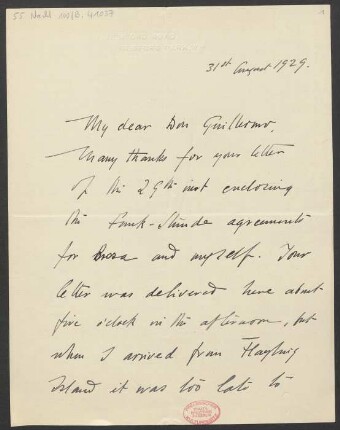 31st August 1929.
My dear Don Guillermo,
Many thanks for your letter
of the 29th inst enclosing
the Funk-Stunde agreements
for Brosa and myself. Your
letter was delivered here about
five o'clock in the afternoon, but
when I arrived from Hayling
Island it was too late to